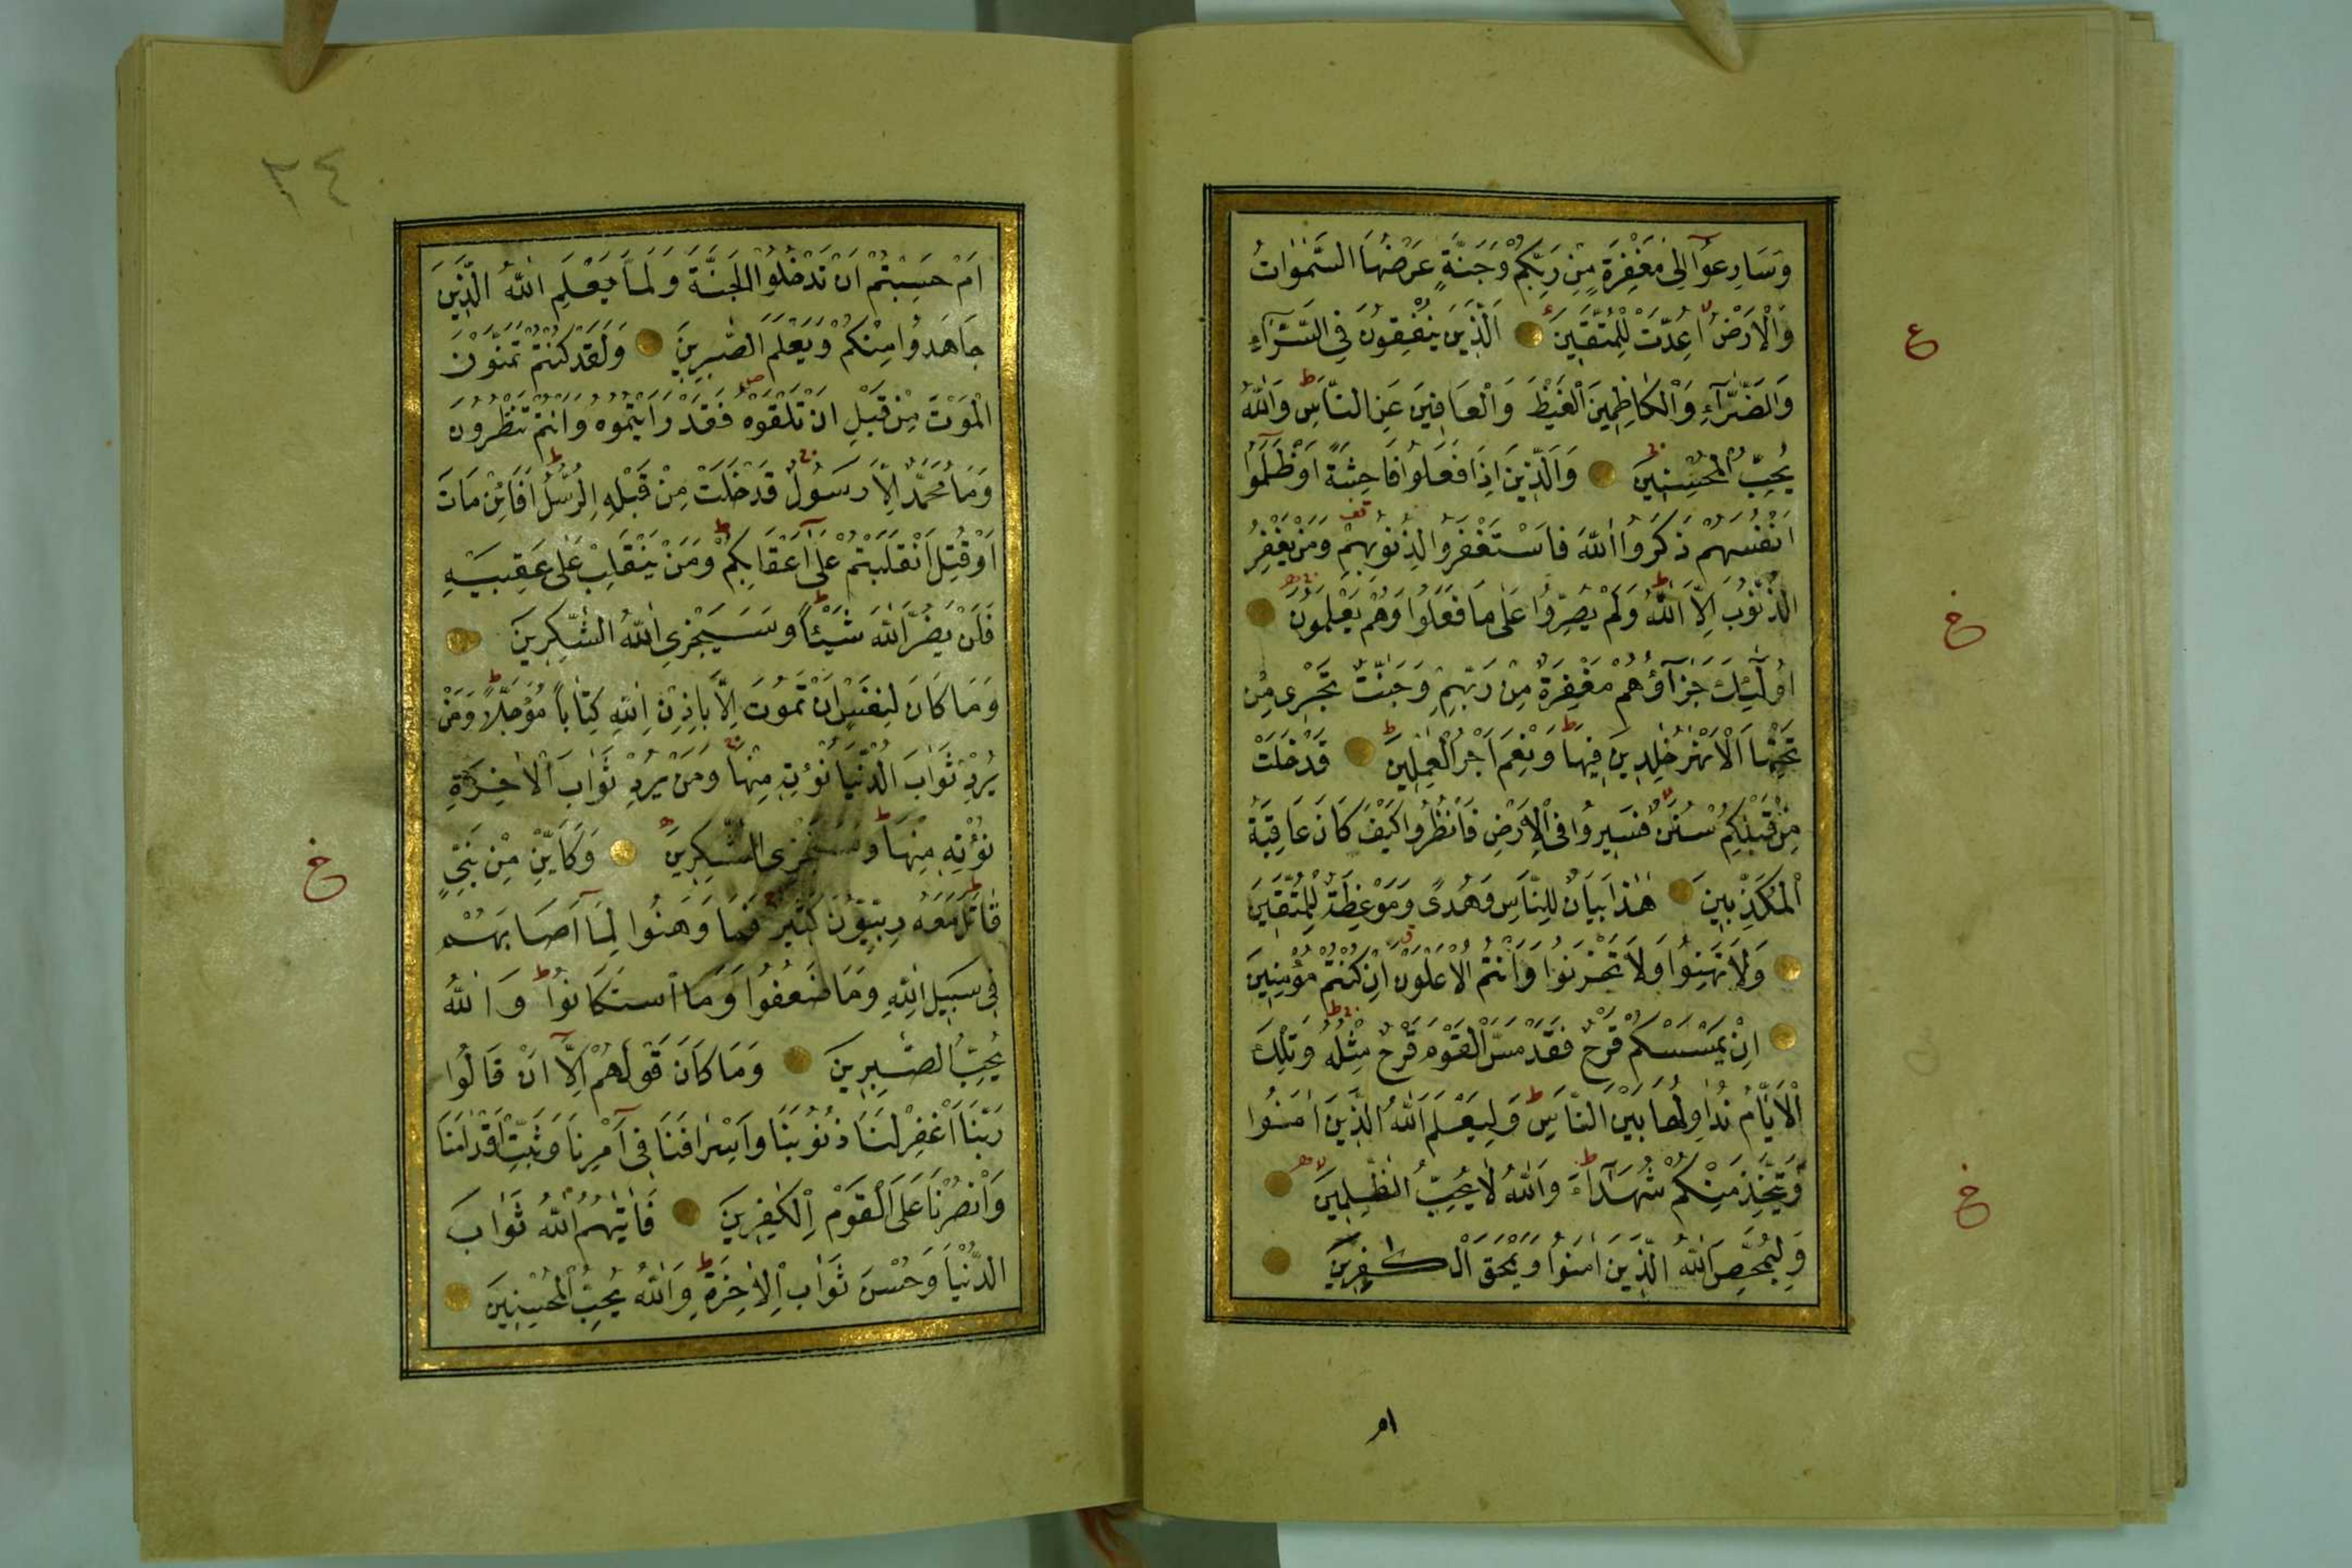 وَسَارِعُوٓا اِلٰى مَغْفِرَةٍ مِنْ رَبِّكُمْ وَجَنَّةٍ عَرْضُهَا السَّمٰوَاتُ
وَالْاَرْضُ اُعِدَّتْ لِلْمُتَّقِينَ اَلَّذِينَ يُنْفِقُونَ فِي السَّرَّآءِ
وَالضَّرَّآءِ وَالْكَاظِمِينَ الْغَيْظَ وَالْعَافِينَ عَنِ النَّاسِ وَاللّٰهُ
يُحِبُّ الْمُحْسِنِينَ وَالَّذِينَ اِذَا فَعَلُوا فَاحِشَةً اَوْ ظَلَمُوٓا
اَنْفُسَهُمْ ذَكَرُوا اللّٰهَ فَاسْتَغْفَرُوا لِذُنُوبِهِمْ وَمَنْ يَغْفِرُ
الذُّنُوبَ اِلَّا اللّٰهُ وَلَمْ يُصِرُّوا عَلٰى مَا فَعَلُوا وَهُمْ يَعْلَمُونَ
اُولٰٓئِكَ جَزَآؤُهُمْ مَغْفِرَةٌ مِنْ رَبِّهِمْ وَجَنّٰتٌ تَجْرِى مِنْ
تَحْتِهَا الْاَنْهٰرُ خٰلِدِينَ فِيهَا وَنِعْمَ اَجْرُ الْعٰمِلِينَ قَدْ خَلَتْ
مِنْ قَبْلِكُمْ سُنَنٌ فَسِيرُوا فِى الْاَرْضِ فَانْظُرُوا كَيْفَ كَانَ عَاقِبَةُ
الْمُكَذِّبِينَ هٰذَا بَيَانٌ لِلنَّاسِ وَهُدًى وَمَوْعِظَةٌ لِلْمُتَّقِينَ
وَلَا تَهِنُوا وَلَا تَحْزَنُوا وَاَنْتُمُ الْاَعْلَوْنَ اِنْ كُنْتُمْ مُؤْمِنِينَ
اِنْ يَمْسَسْكُمْ قَرْحٌ فَقَدْ مَسَّ الْقَوْمَ قَرْحٌ مِثْلُهُ وَتِلْكَ
الْاَيَّامُ نُدَاوِلُهَا بَيْنَ النَّاسِ وَلِيَعْلَمَ اللّٰهُ الَّذِينَ اٰمَنُوا
وَيَتَّخِذَ مِنْكُمْ شُهَدَآءَ وَاللّٰهُ لَا يُحِبُّ الظّٰلِمِينَ
وَلِيُمَحِّصَ اللّٰهُ الَّذِينَ اٰمَنُوا وَيَمْحَقَ الْكٰفِرِينَ
ام
ع
خ
خ
٢٤
اَمْ حَسِبْتُمْ اَنْ تَدْخُلُوا الْجَنَّةَ وَلَمَّا يَعْلَمِ اللّٰهُ الَّذِينَ
جَاهَدُوا مِنْكُمْ وَيَعْلَمَ الصّٰبِرِينَ وَلَقَدْ كُنْتُمْ تَمَنَّوْنَ
الْمَوْتَ مِنْ قَبْلِ اَنْ تَلْقَوْهُ فَقَدْ رَاَيْتُمُوهُ وَاَنْتُمْ تَنْظُرُونَ
وَمَا مُحَمَّدٌ اِلَّا رَسُولٌ قَدْ خَلَتْ مِنْ قَبْلِهِ الرُّسُلُ اَفَائِنْ مَاتَ
اَوْ قُتِلَ انْقَلَبْتُمْ عَلٰٓى اَعْقَابِكُمْ وَمَنْ يَنْقَلِبْ عَلٰى عَقِبَيْهِ
فَلَنْ يَضُرَّ اللّٰهَ شَيْئًا وَسَيَجْزِى اللّٰهُ الشّٰكِرِينَ
وَمَا كَانَ لِنَفْسٍ اَنْ تَمُوتَ اِلَّا بِاِذْنِ اللّٰهِ كِتَابًا مُؤَجَّلًا وَمَنْ
يُرِدْ ثَوَابَ الدُّنْيَا نُؤْتِهِ مِنْهَا وَمَنْ يُرِدْ ثَوَابَ الْاٰخِرَةِ
نُؤْتِهِ مِنْهَا وَسَنَجْزِى الشّٰكِرِينَ وَكَاَيِّنْ مِنْ نَبِىٍّ
قَاتَلَ مَعَهُ رِبِّيُّونَ كَثِيرٌ فَمَا وَهَنُوا لِمَآ اَصَابَهُمْ
فِى سَبِيلِ اللّٰهِ وَمَا ضَعُفُوا وَمَا اسْتَكَانُوا وَاللّٰهُ
يُحِبُّ الصّٰبِرِينَ وَمَا كَانَ قَوْلَهُمْ اِلَّآ اَنْ قَالُوا
رَبَّنَا اغْفِرْ لَنَا ذُنُوبَنَا وَاِسْرَافَنَا فِىٓ اَمْرِنَا وَثَبِّتْ اَقْدَامَنَا
وَانْصُرْنَا عَلَى الْقَوْمِ الْكٰفِرِينَ فَاٰتٰيهُمُ اللّٰهُ ثَوَابَ
الدُّنْيَا وَحُسْنَ ثَوَابِ الْاٰخِرَةِ وَاللّٰهُ يُحِبُّ الْمُحْسِنِينَ
خ